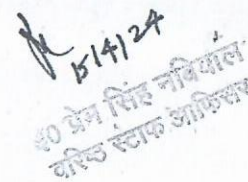 15/4/24
प्रेम सिंह नबियाल
वरिष्ठ स्टाफ आफिसर